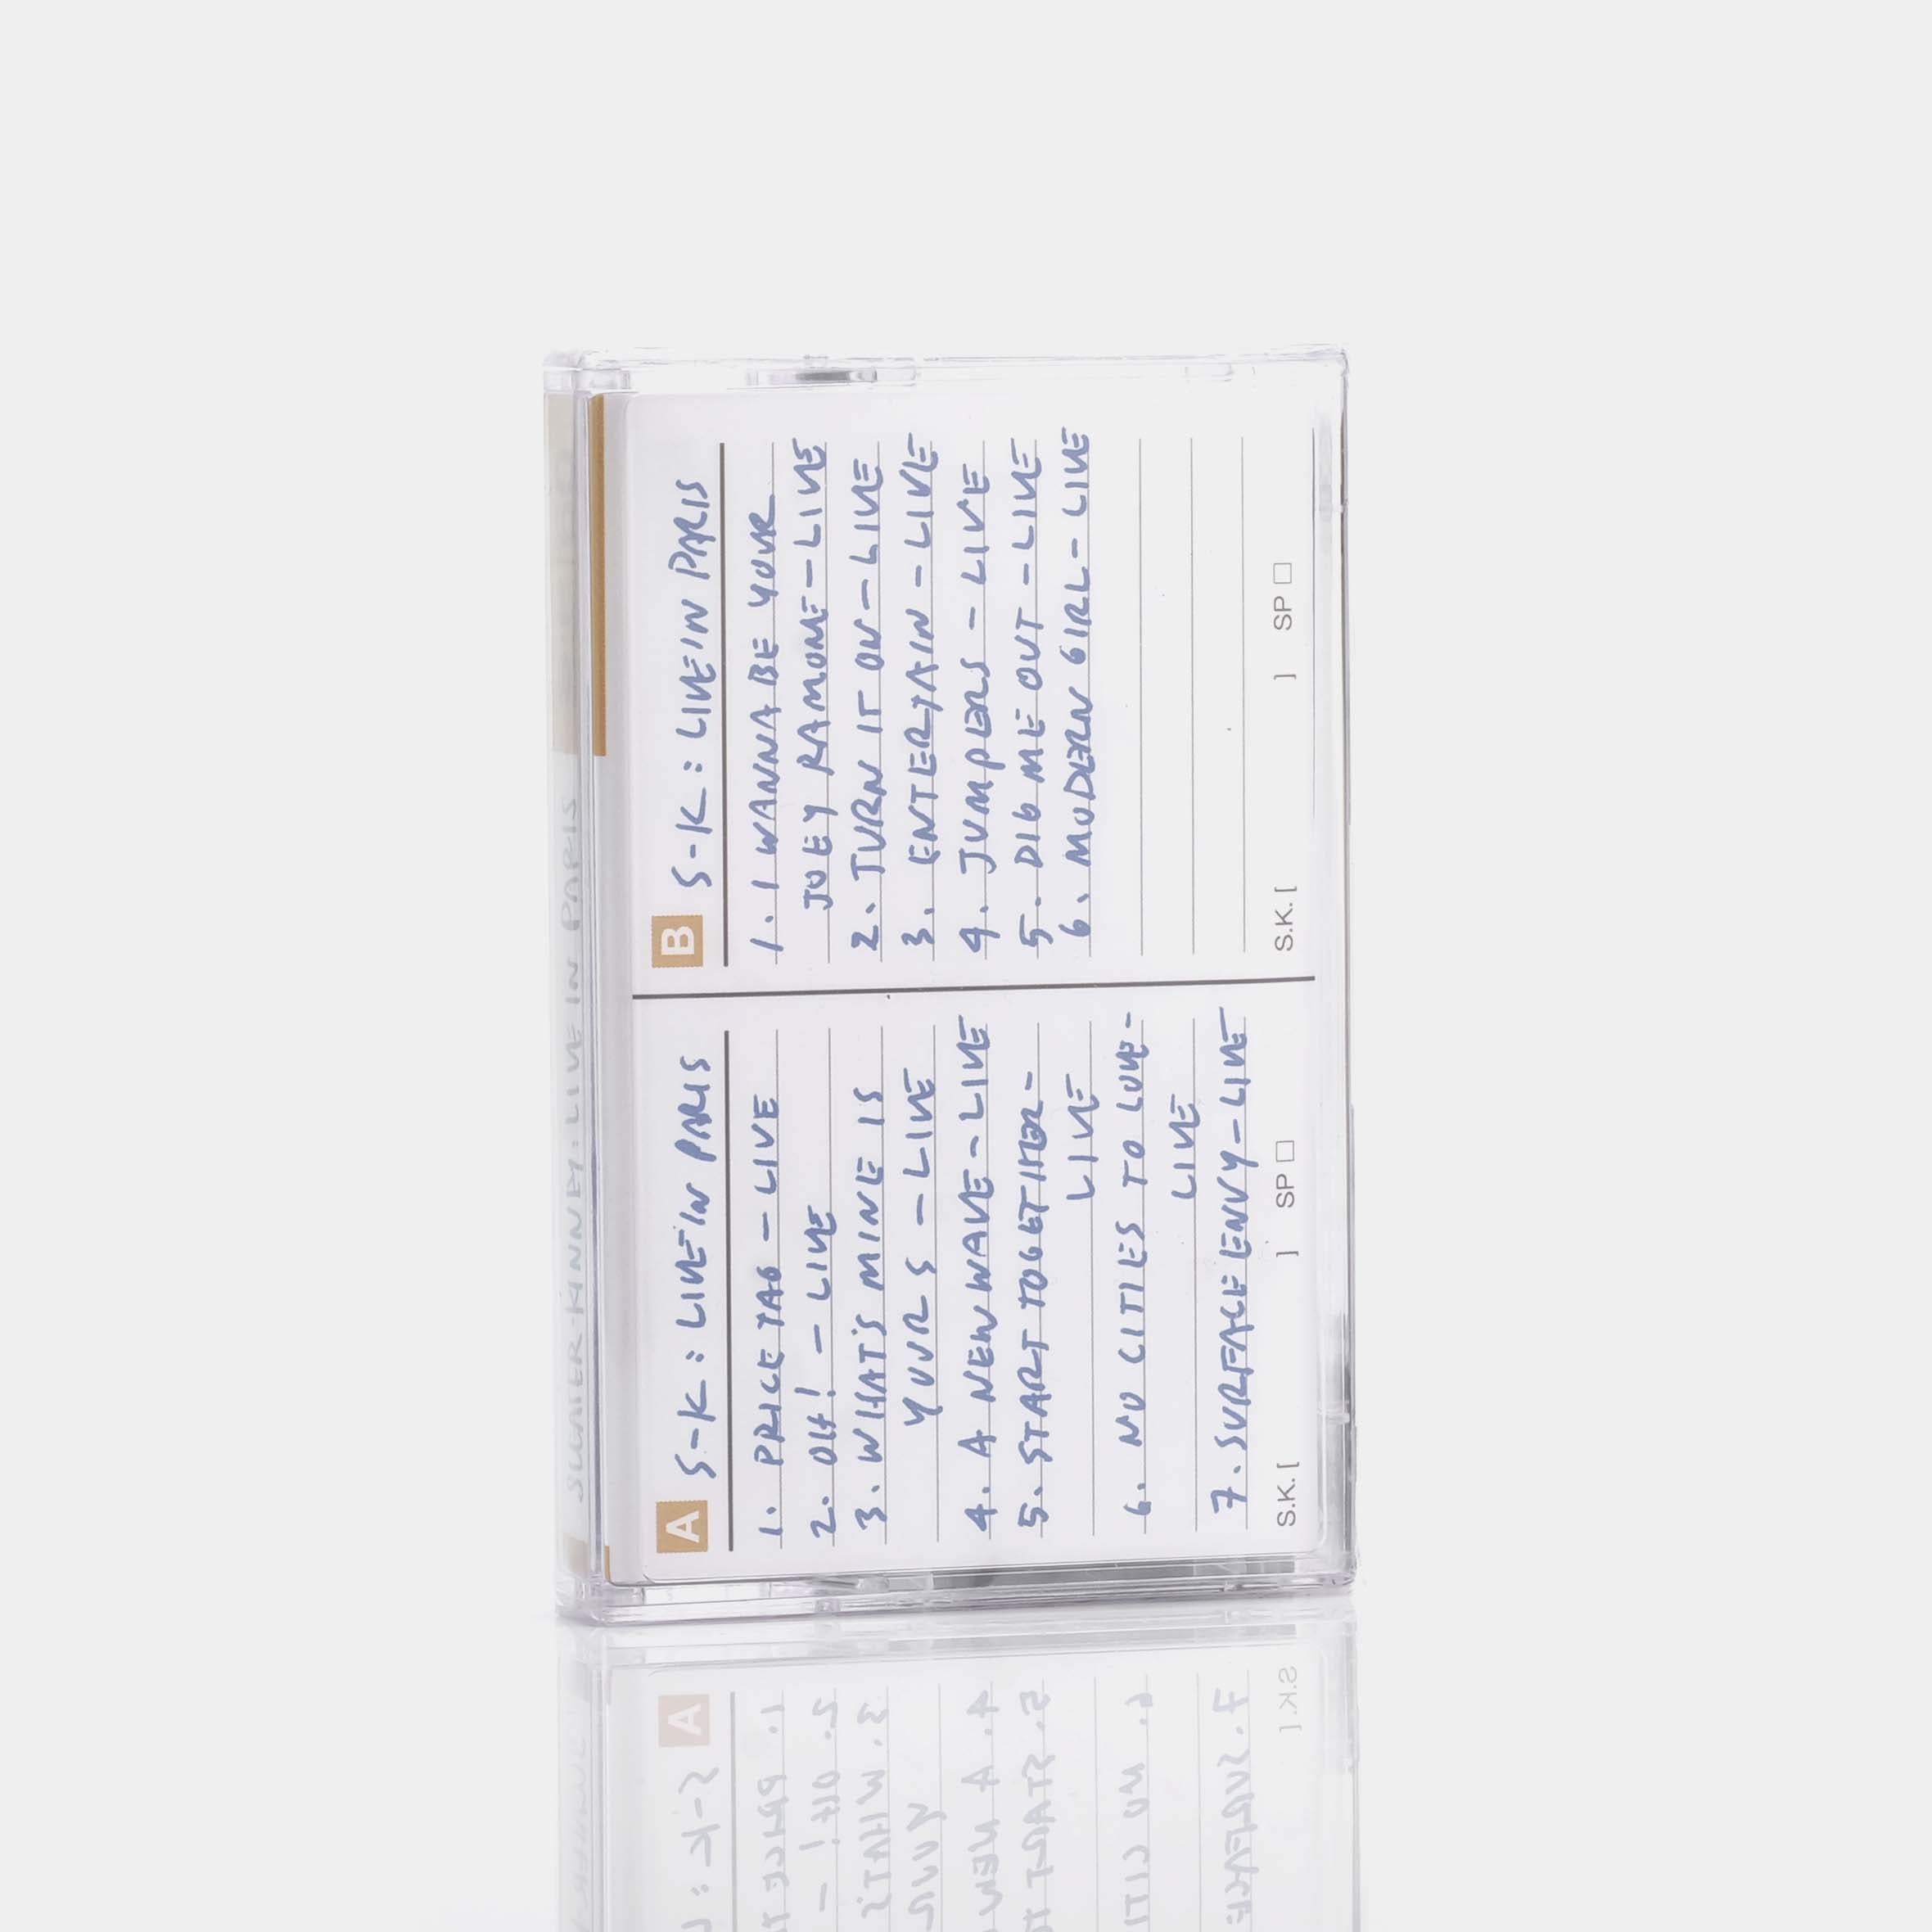 SLEATER-KINNEY: LIVE IN PARIS
A S-K: LIVE IN PARIS
1. PRICE TAG - LIVE
2. OH! - LIVE
3. WHAT'S MINE IS
YOURS - LIVE
4. A NEW WAVE - LIVE
5. START TOGETHER -
LIVE
6. NO CITIES TO LOVE -
LIVE
7. SURFACE ENVY - LIVE
S.K. [ ] SP □
B S-K: LIVE IN PARIS
1. I WANNA BE YOUR
JOEY RAMONE - LIVE
2. TURN IT ON - LIVE
3. ENTERTAIN - LIVE
4. JUMPERS - LIVE
5. DIG ME OUT - LIVE
6. MODERN GIRL - LIVE
S.K. [ ] SP □